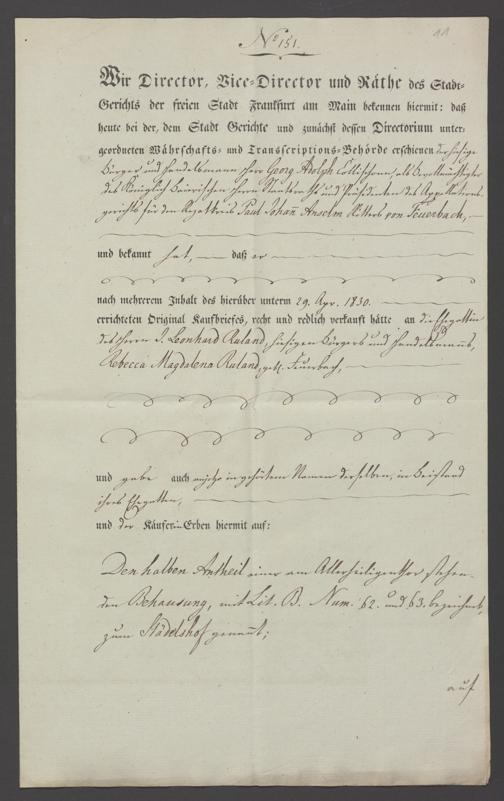 11
No 151.
Wir Director, Vice-Director und Räthe des Stadt-
Gerichts der freien Stadt Frankfurt am Main bekennen hiermit: daß
heute bei der, dem Stadt Gerichte und zunächst dessen Directorium unter-
geordneten Währschafts- und Transcriptions-Behörde erschienen der hiesige
Bürger und Handelsmann Herr Georg Adolph Collischonn, als Bevollmächtigter
des Königlich Baierischen Herrn Staatsraths und Präsidenten des Appellations-
gerichts für den Rezatkreis Paul Johann Anselm Ritters von Feuerbach,
und bekannt hat, daß er
nach mehrerem Inhalt des hierüber unterm 29. Apr. 1830.
errichteten Original Kaufbriefes, recht und redlich verkauft hätte an die Ehegattin
des Herrn J. Leonhard Ruland, hiesigen Bürgers und Handelsmanns,
Rebecca Magdalena Ruland, geb. Feuerbach,
und gabe auch anjetzo in gehörtem Namen derselben, in Beistand
ihres Ehegatten,
und der Käuferin Erben hiermit auf:
Den halben Antheil einer am Allerheiligenthor stehen-
den Behausung, mit Lit. B. Num. 62. und 63. bezeichnet,
zum Städelshof genannt;
auf